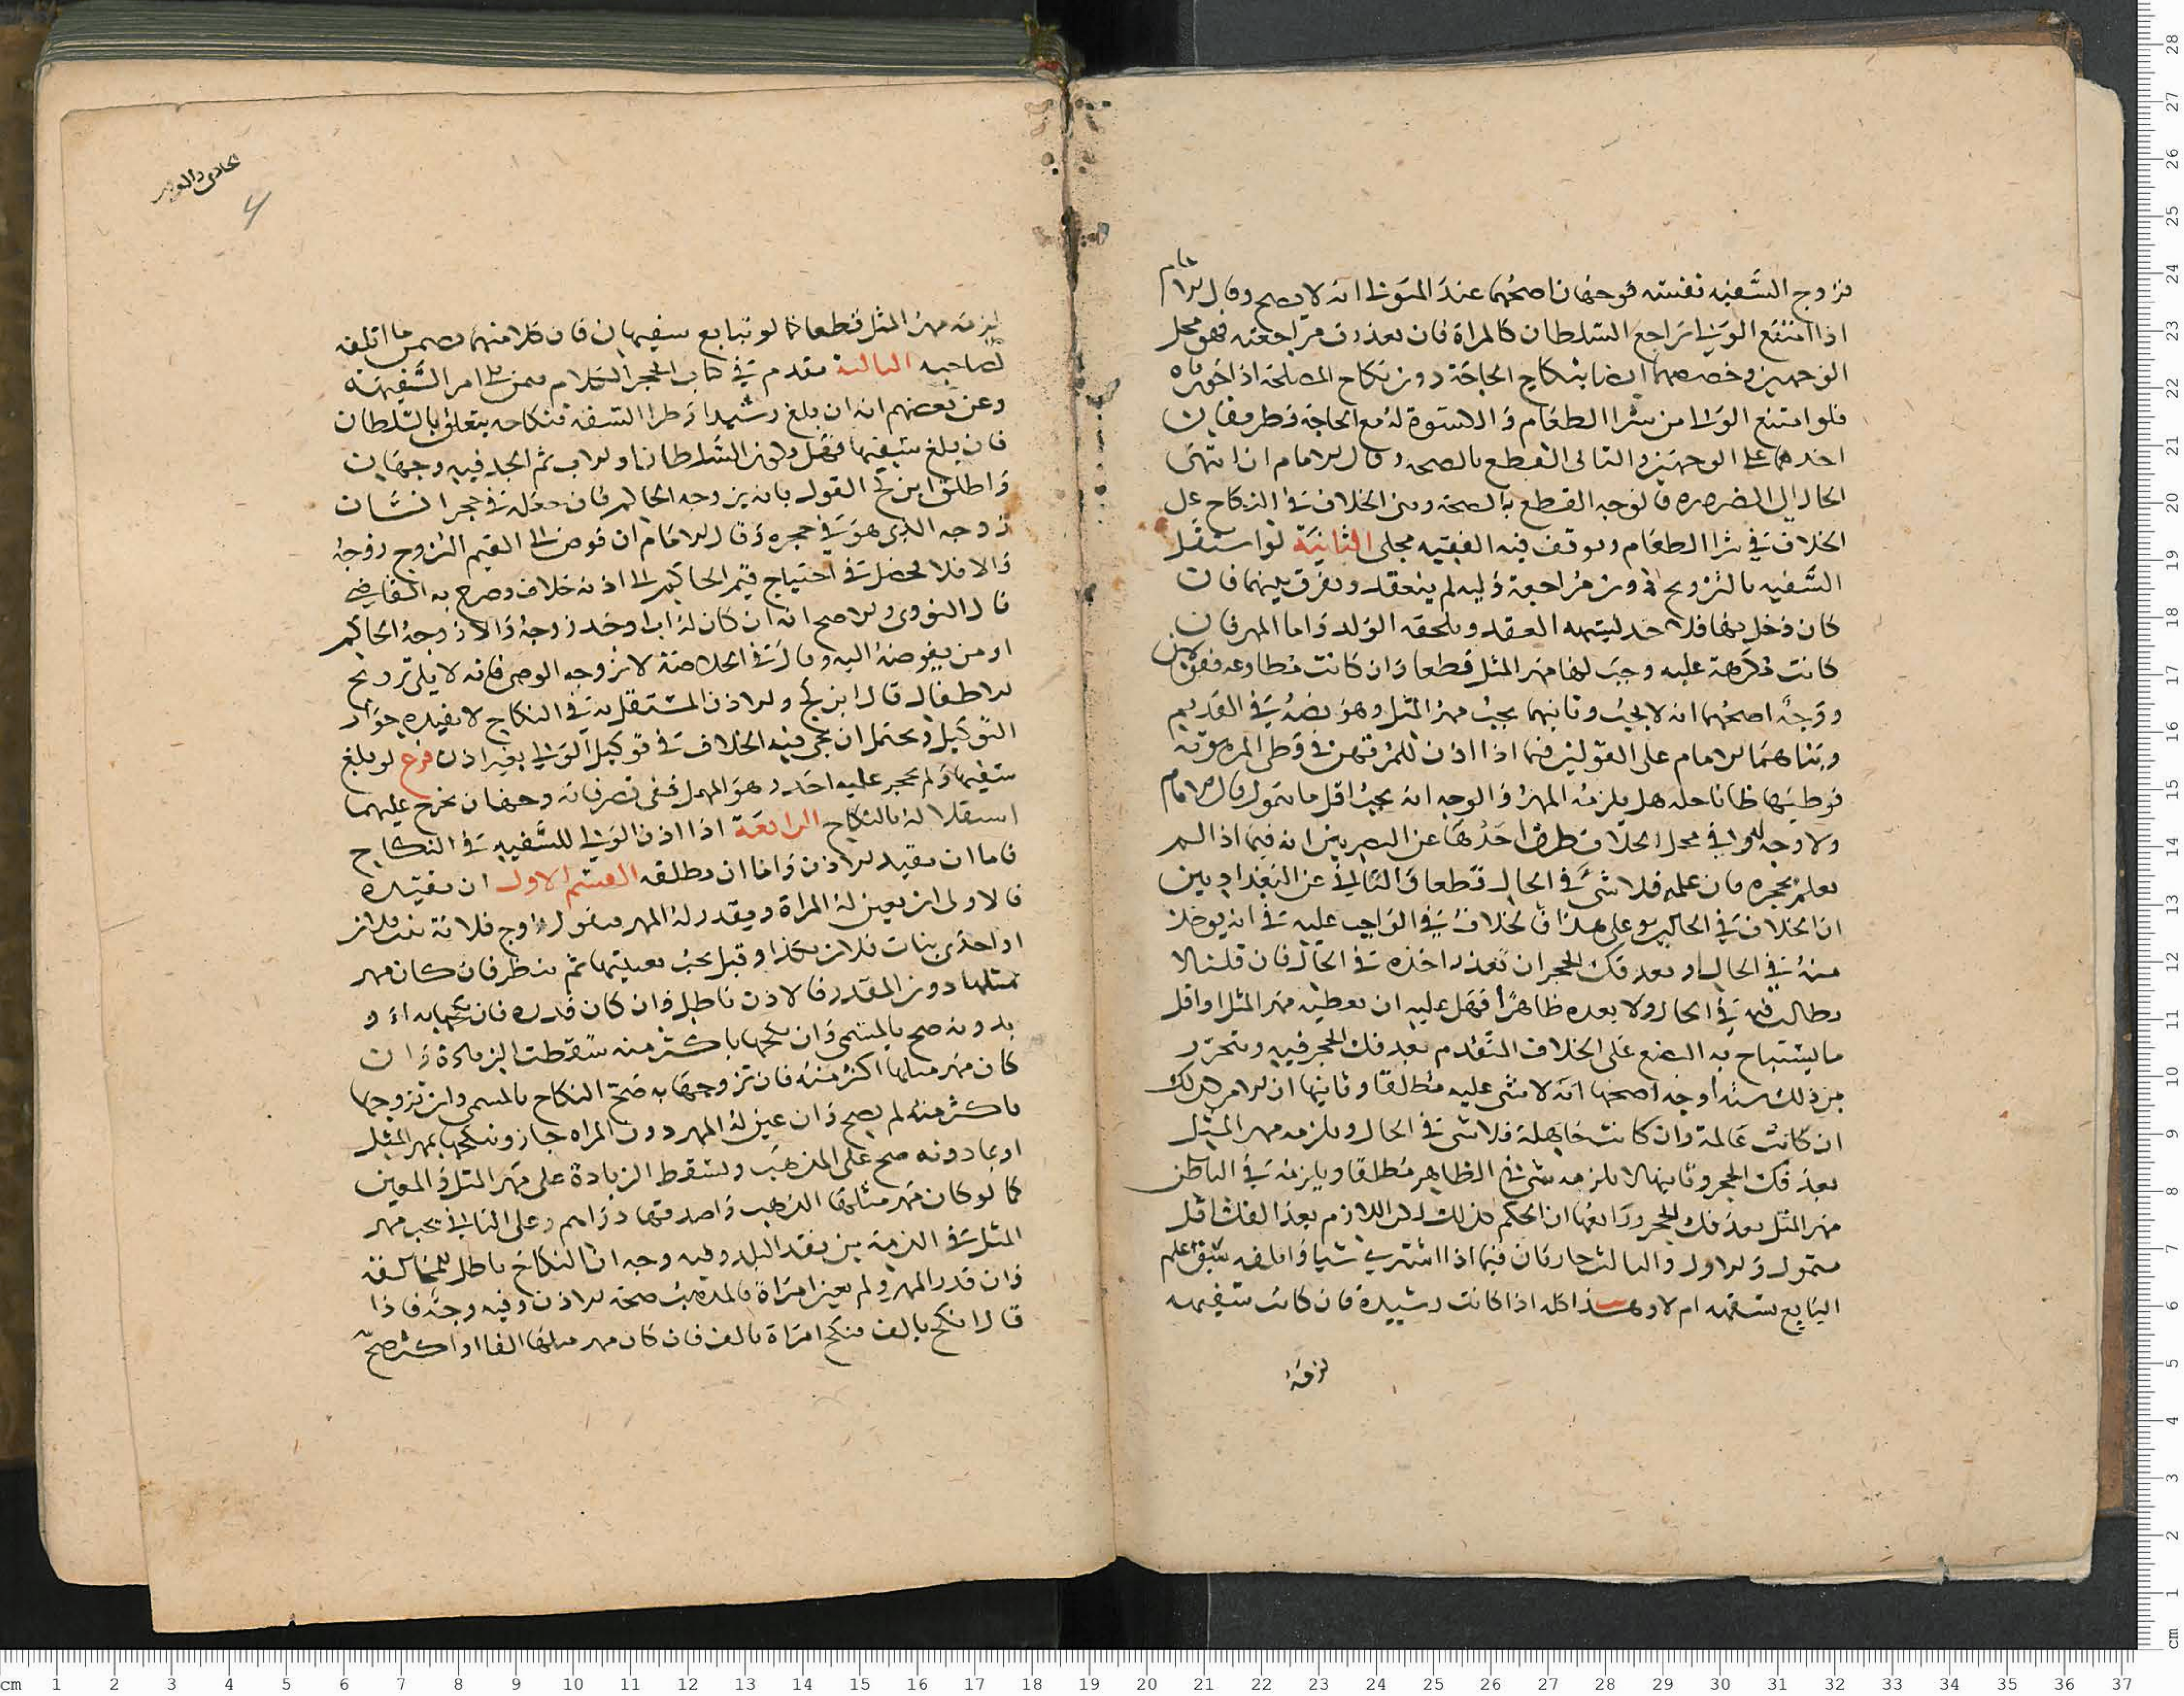 تزوج السفيه نفسه فوجهان اصحهما عند المتولى انه لا يصح وقال الامام
اذا امتنع الولي راجع السلطان كالمراة فان تعذرت مراجعته فهو محل
الوجهين وخصصهما ايضا بنكاح الحاجة دون نكاح المصلحة اذا جوزناه
فلو امتنع الولى من شرا الطعام والكسوة له مع الحاجة فطريقان
احدهما على الوجهين والثانى القطع بالصحه وقال الامام ان انتهى
الحال الى الضروره فالوجه القطع بالصحة وبنى الخلاف فى النكاح على
الخلاف فى شرا الطعام وتوقف فيه الفقيه مجلى الثانية لو استقل
السفيه بالتزويج دون مراجعة وليه لم ينعقد ويفرق بينهما فان
كان دخل بها فلا حد لشبهه العقد ويلحقه الولد واما المهر فان
كانت مكرهة عليه وجب لها مهر المثل قطعا وان كانت مطاوعه فقولان
ووجه اصحهما انه لا يجب وثانيهما يجب مهر المثل وهو نصه فى القديم
وبناهما الامام على القولين فيما اذا اذن للمرتهن فى وطى المرهونة
فوطيها ظانا حله هل يلزمه المهر والوجه انه يجب اقل ما يتمول قال الامام
ولا وجه له وفي محل الخلاف طرق احدها عن البصريين انه فيما اذا لم
تعلم بحجره فان علمه فلا شئ فى الحال قطعا والثاني عن البغداديين
ان الخلاف فى الحالين وعلى هذا فالخلاف فى الواجب عليه فى انه يوخذ
منه فى الحال او بعد فك الحجر ان تعذر اخذه فى الحال فان قلنا لا
يطالب به فى الحال ولا بعده ظاهرا فهل عليه ان يعطيه مهر المثل او اقل
ما يستباح به البضع على الخلاف المتقدم بعد فك الحجر فيه ويتحرر
من ذلك ستة أوجه اصحها انه لا شى عليه مطلقا وثانيها ان الامر كذلك
ان كانت عالمة وان كانت جاهلة فلا شى فى الحال ويلزمه مهر المثل
بعد فك الحجر وثالثها لا يلزمه شى في الظاهر مطلقا ويلزمه فى الباطن
مهر المثل بعد فك الحجر ورابعها ان الحكم كذلك لكن اللازم بعد الفك اقل
متمول والاول والثالث جاريان فيما اذا اشترى شيا واتلفه سوا علم
البايع سفهه ام لا وهذا كله اذا كانت رشيدة فان كانت سفيهه
لزمه
4
لزمه مهر المثل قطعا كما لو تبايع سفيهان فان كلا منهما يضمن ما اتلفه
لصاحبه الثالثة تقدم فى كتاب الحجر الكلام فيمن يلى امر السفيه
وعن بعضهم انه ان بلغ رشيدا وطرا السفه فنكاحه يتعلق بالسلطان
فان بلغ سفيها فهل وليه السلطان او الاب ثم الجد فيه وجهان
واطلق ابن كج القول بانه يزوجه الحاكم فان جعله فى حجر انسان
زوجه الذى هو فى حجره وقال الامام ان فوض الى القيم التزوج زوجه
والا فلا فحصل فى احتياج قيم الحاكم الى اذنه خلاف وصرح به القاضي
قال النووى والاصح انه ان كان له اب او جد زوجه والا زوجه الحاكم
او من يفوضه اليه وقال فى الخلاصة لا يزوجه الوصى فانه لا يلى تزويج
الاطفال قال ابن كج والاذن المستقل به فى النكاح لا يفيده جواز
التوكيل ويحتمل ان يجى فيه الخلاف فى توكيل الولي بغير اذن فرع لو بلغ
سفيها ولم يحجر عليه احد وهو المهمل ففى تصرفاته وجهان يخرج عليهما
استقلاله بالنكاح الرابعة اذا اذن الولي للسفيه فى النكاح
فاما ان يقيد الاذن واما ان يطلقه القسم الاول ان يقيده
فالاولى ان يعين له المراة ويقدر له المهر فيقول تزوج فلانة بنت فلان
او احدى بنات فلان بكذا وقيل يجب تعيينها ثم ينظر فان كان مهر
مثلها دون المقدر فالاذن باطل وان كان قدره فان نكحها به او
بدونه صح بالمسمى وان نكحها باكثر منه سقطت الزيادة وان
كان مهر مثلها اكثر منه فان تزوجها به صح النكاح بالمسمى وان تزوجها
باكثر منه لم يصح وان عين له المهر دون المراه جاز ونكحها بمهر المثل
او بما دونه صح على المذهب وتسقط الزيادة على مهر المثل والمعين
كما لو كان مهر مثلها الذهب واصدقها دراهم وعلى الثاني يجب مهر
المثل فى الذمة من نقد البلد وفيه وجه ان النكاح باطل للمخالفة
وان قدر المهر ولم يعين امراة فالمذهب صحة الاذن وفيه وجه فاذا
قال انكح بالف فنكح امراة بالف فان كان مهر مثلها الفا او اكثر صح